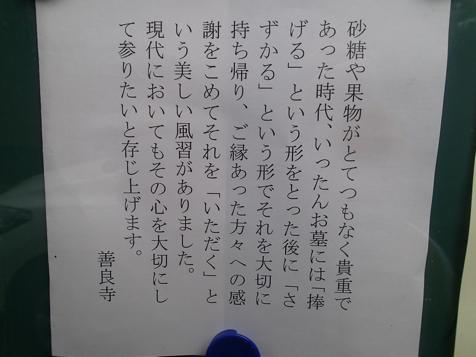 砂糖や果物がとてつもなく貴重で
あった時代、いったんお墓には「捧
げる」という形をとった後に「さ
ずかる」という形でそれを大切に
持ち帰り、ご縁あった方々への感
謝をこめてそれを「いただく」と
いう美しい風習がありました。
現代においてもその心を大切にし
て参りたいと存じ上げます。
善良寺